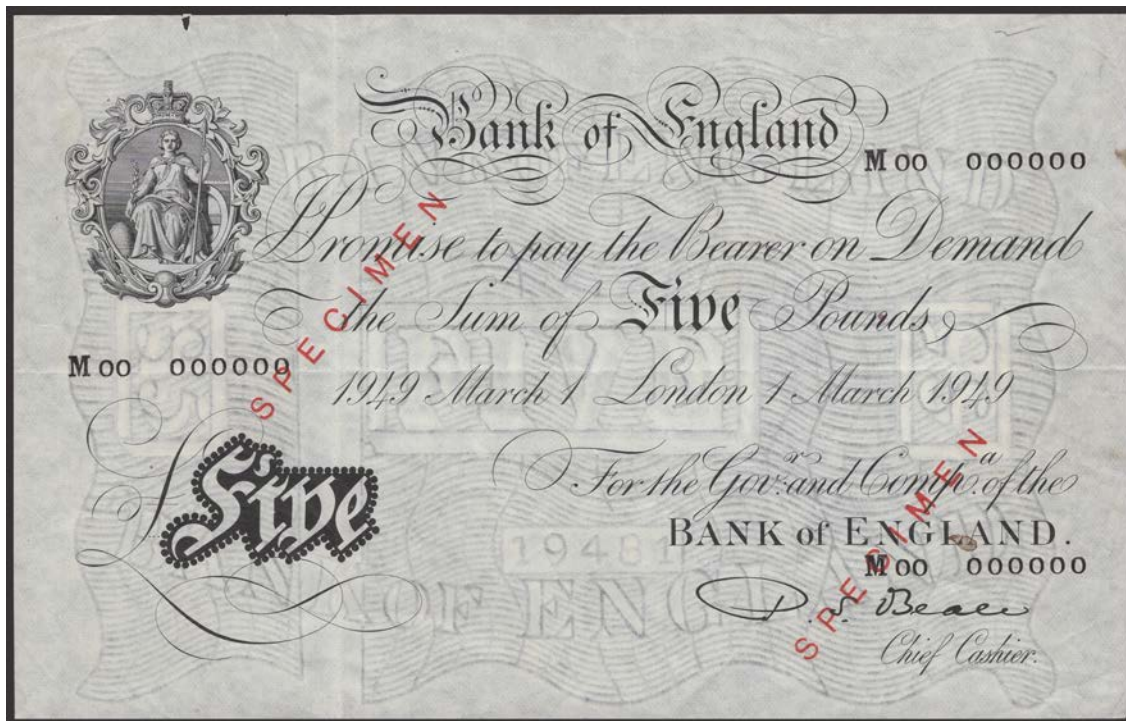 Bank of England
M 00 000000
I Promise to pay the Bearer on Demand
the Sum of Five Pounds
M 00 000000
1949 March 1 London 1 March 1949
SPECIMEN
Five
For the Gov.r and Comp.a of the
BANK of ENGLAND.
M 00 000000
P. S. Beale
Chief Cashier.
SPECIMEN
FIVE
19481
OF ENGLAND